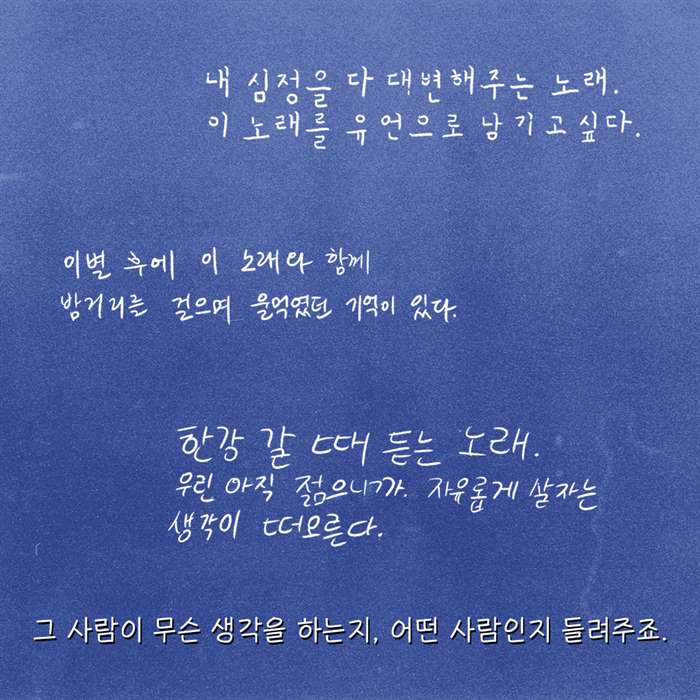 내 심정을 다 대변해주는 노래.
이 노래를 유언으로 남기고싶다.
이별 후에 이 노래와 함께
밤거리를 걸으며 울먹였던 기억이 있다.
한강 갈 때 듣는 노래.
우린 아직 젊으니까. 자유롭게 살자는
생각이 떠오른다.
그 사람이 무슨 생각을 하는지, 어떤 사람인지 들려주죠.